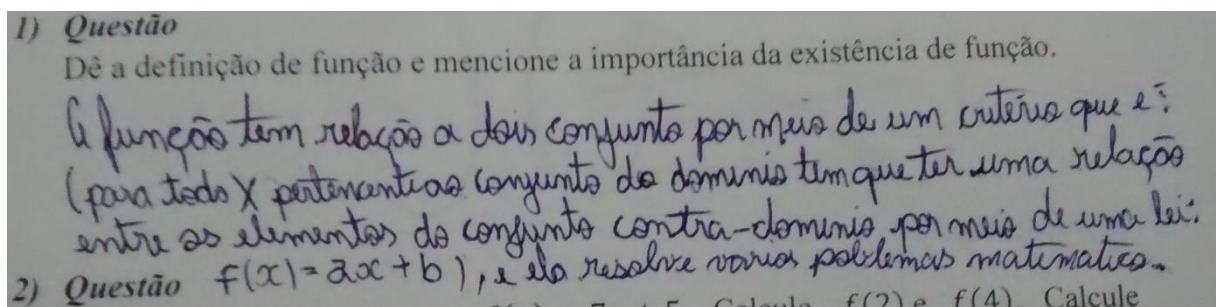 1) Questão
Dê a definição de função e mencione a importância da existência de função.
A função tem relação a dois conjunto por meio de um criterio que e:
(para todo X pertencente ao conjunto do dominio tem que ter uma relação
entre os elementos do conjunto contra-dominio por meio de uma lei:
2) Questão f(x)=ax+b), e ela resolve varios poblemas matematico.
f(2) e f(4). Calcule